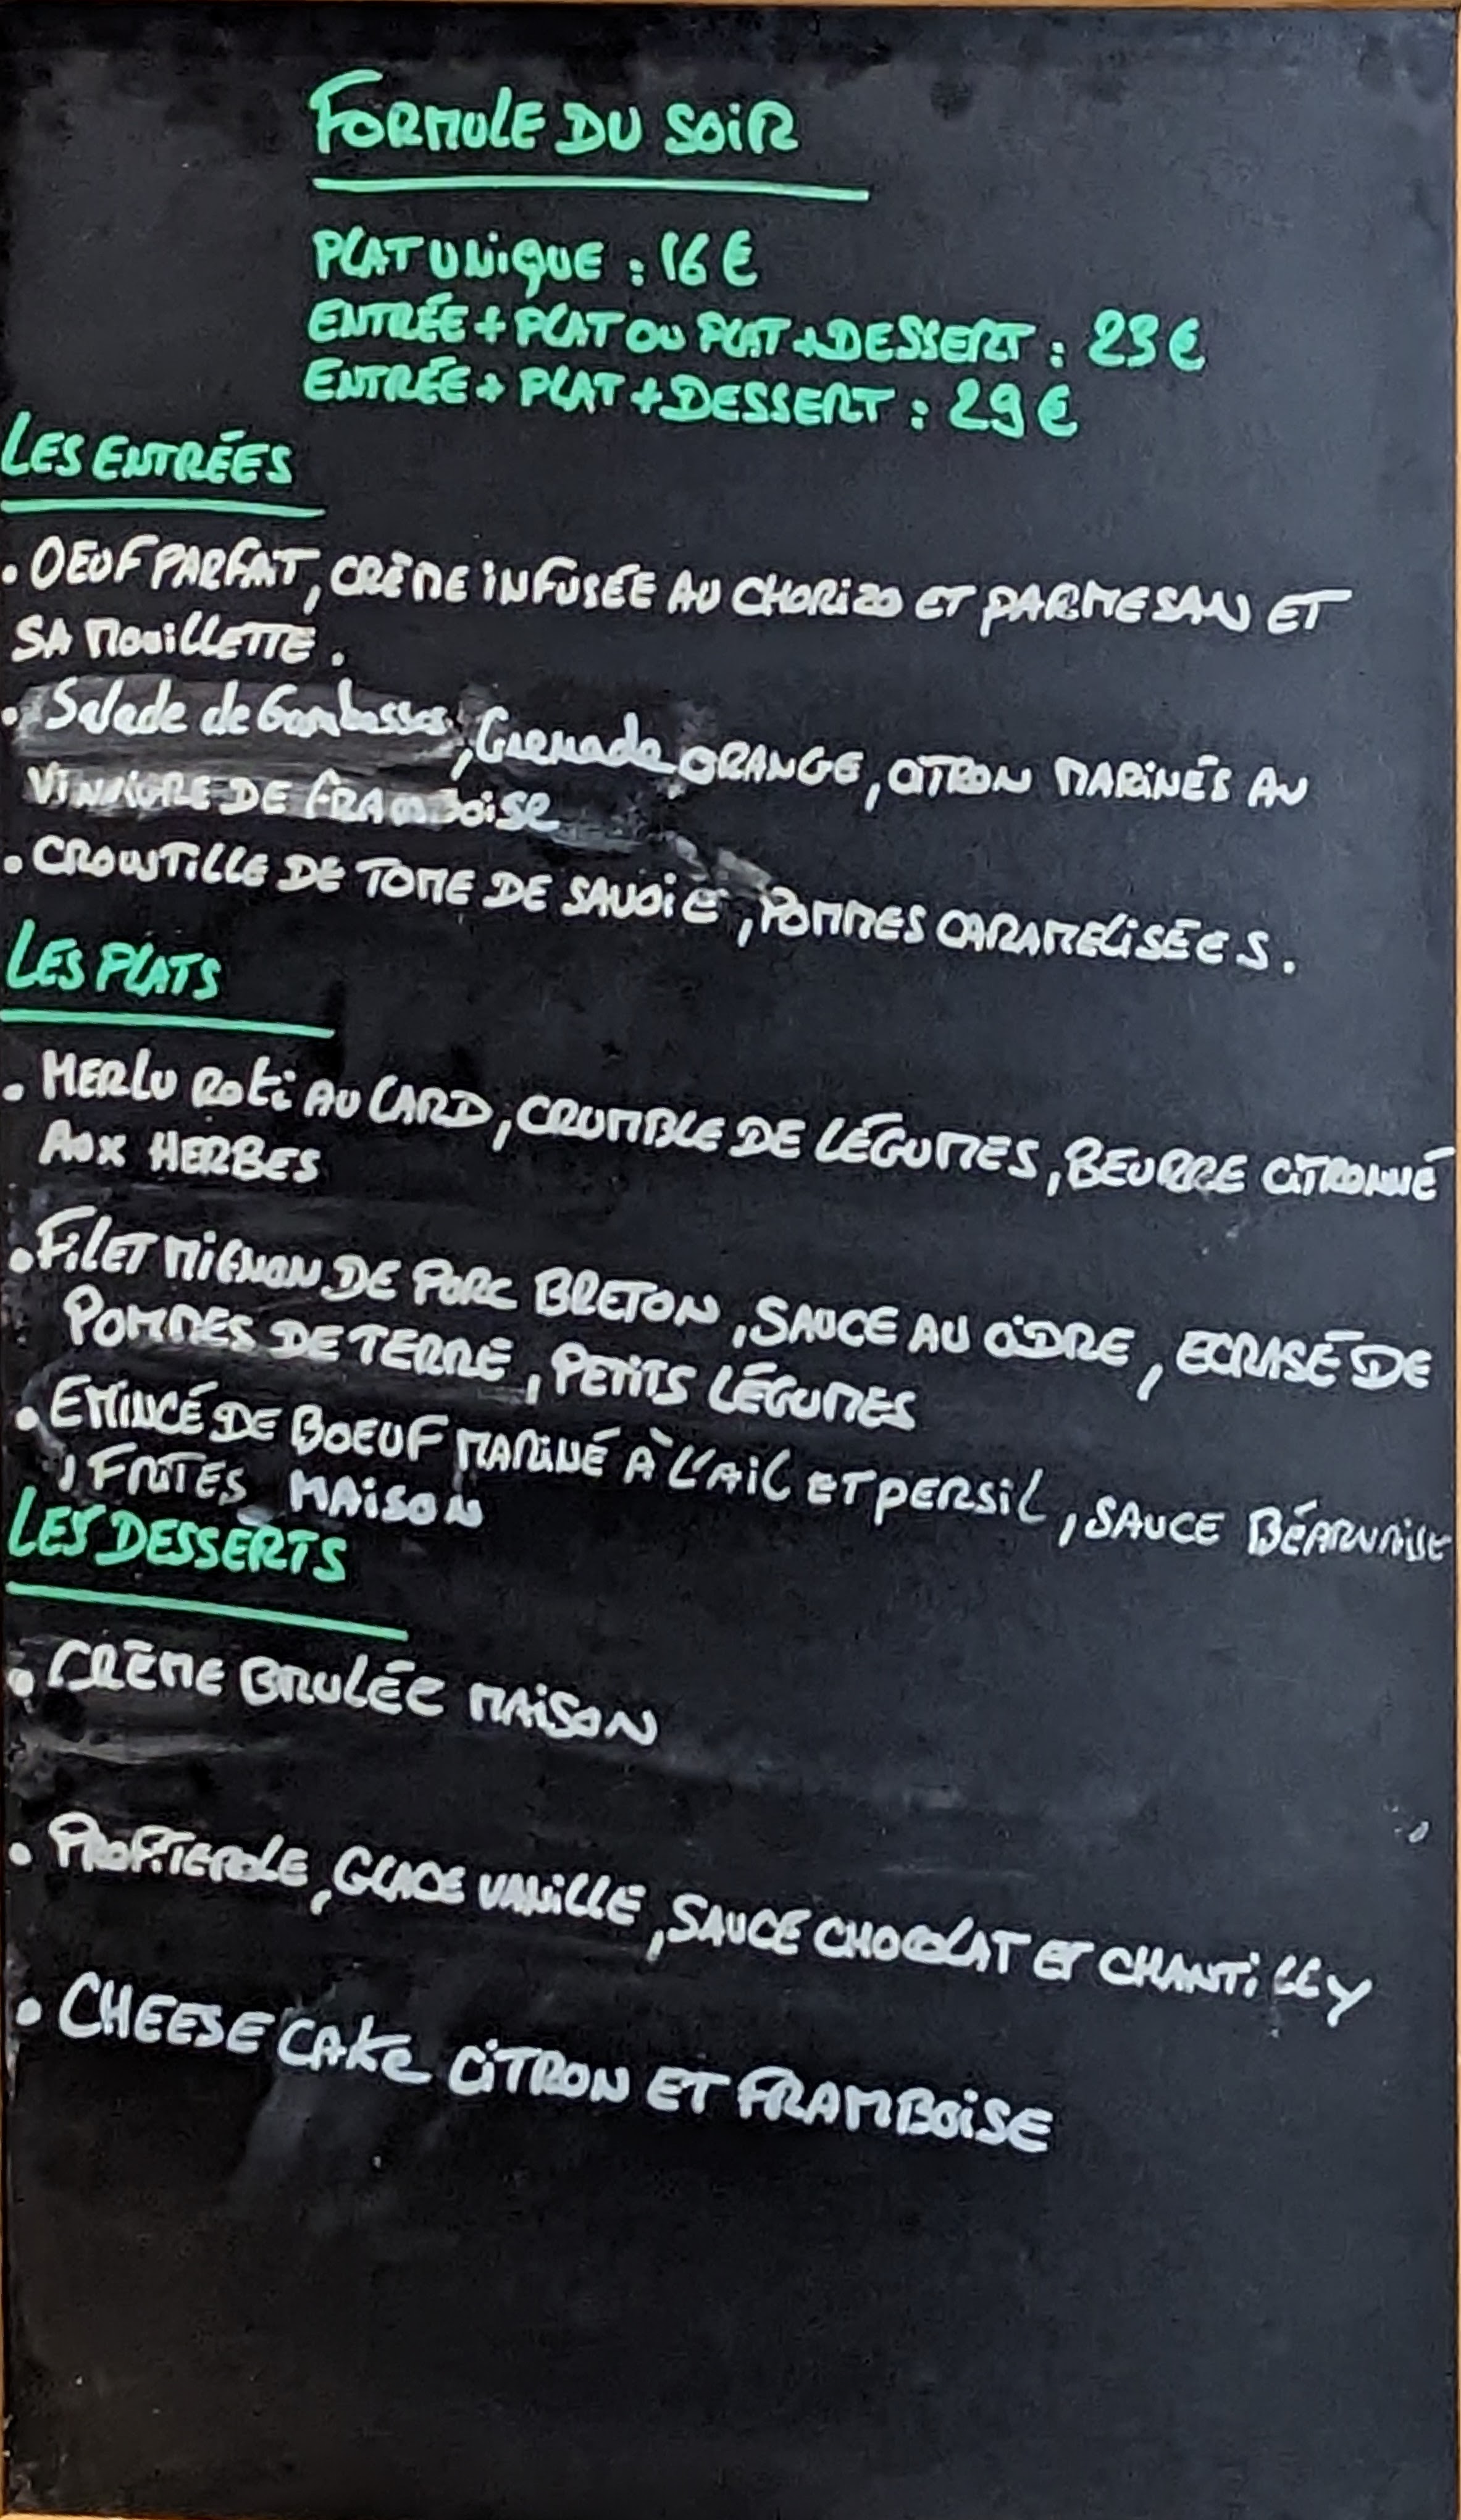 FORMULE DU SOIR
PLAT UNIQUE : 16 €
ENTRÉE + PLAT OU PLAT + DESSERT : 23 €
ENTRÉE + PLAT + DESSERT : 29 €
LES ENTRÉES
• OEUF PARFAIT, CRÈME INFUSÉE AU CHORIZO ET PARMESAN ET
SA MOUILLETTE .
• Salade de Gambasses, Grenade ORANGE, CITRON MARINÉS AU
VINAIGRE DE FRAMBOISE
• CROUSTILLE DE TOME DE SAVOIE, POMMES CARAMELISÉES .
LES PLATS
• MERLU Roti AU LARD, CRUMBLE DE LÉGUMES, BEURRE CITRONNÉ
AUX HERBES
• FILET MIGNON DE PORC BRETON, SAUCE AU CIDRE, ECRASÉ DE
POMMES DE TERRE, PETITS LÉGUMES
• EMINCÉ DE BOEUF MARINÉ À L'AIL ET PERSIL, SAUCE BÉARNAISE
, FRITES MAISON
LES DESSERTS
• CRÈME BRULÉE MAISON
• PROFITEROLE, GLACE VANILLE, SAUCE CHOCOLAT ET CHANTILLY
• CHEESE CAKE CITRON ET FRAMBOISE